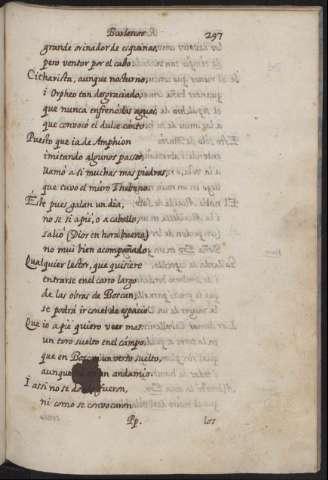 Burlescas.
297
grande orinador de esquinas,
pero ventor por el cabo.
Citharista, aunque nocturno,
i Orpheo tan desgraciado,
que nunca enfrenò las aguas
que convocò el dulce canto.
Puesto que ia de Amphion
imitando algunos passos
llamò a si muchas mas piedras,
que tuvo el muro Thebano.
Este pues galan un dia,
no se si a piè, o a caballo,
saliò (Dios en hora buena)
no mui bien acompañado.
Qualquier lector, que quisiere
entrarse en el carro largo
de las obras de Boscan
se podrà ir con el de espacio.
Que io a piè quiero veer mas
un toro suelto en el campo,
que en Boscan un verso suelto,
aunque en andamio.
I assi no se fueron,
ni como se convocaron
Pp.
los